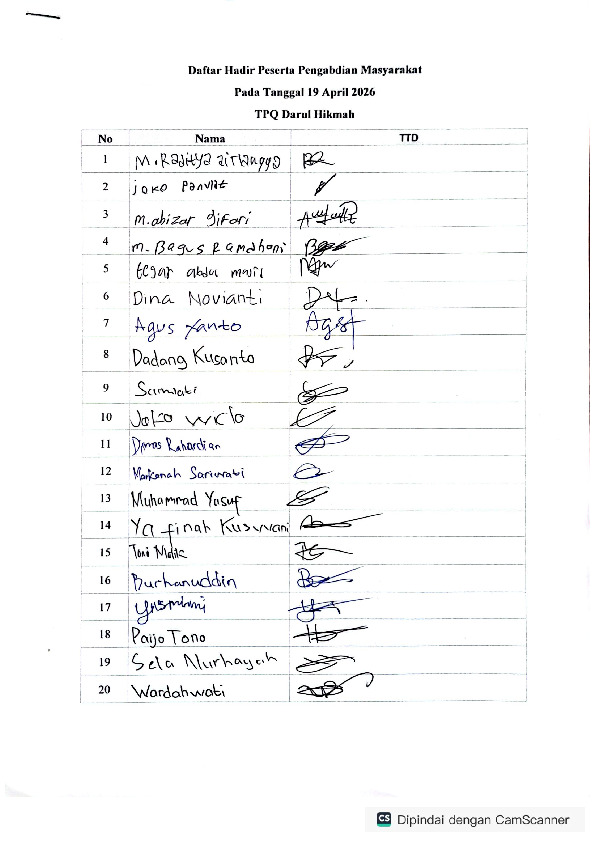 Daftar Hadir Peserta Pengabdian Masyarakat
Pada Tanggal 19 April 2026
TPQ Darul Hikmah
No Nama TTD
1 M. Raditya airlangga
2 joko
3 m. abizar gifari
4 m. Bagus Ramadhani
5 tegar abdul majid
6 Dina Novianti
7 Agus Yanto Agst
8 Dadang Kusanto
9 Sarwati
10 Joko
11 Dimas Rahardian
12 Markonah Sariwati
13 Muhammad Yusuf
14 Ya finah Kuswani
15 Toni
16 Burhanuddin
17
18 Paijo Tono
19 Sela Nurhayah
20 Wardahwati
CS Dipindai dengan CamScanner